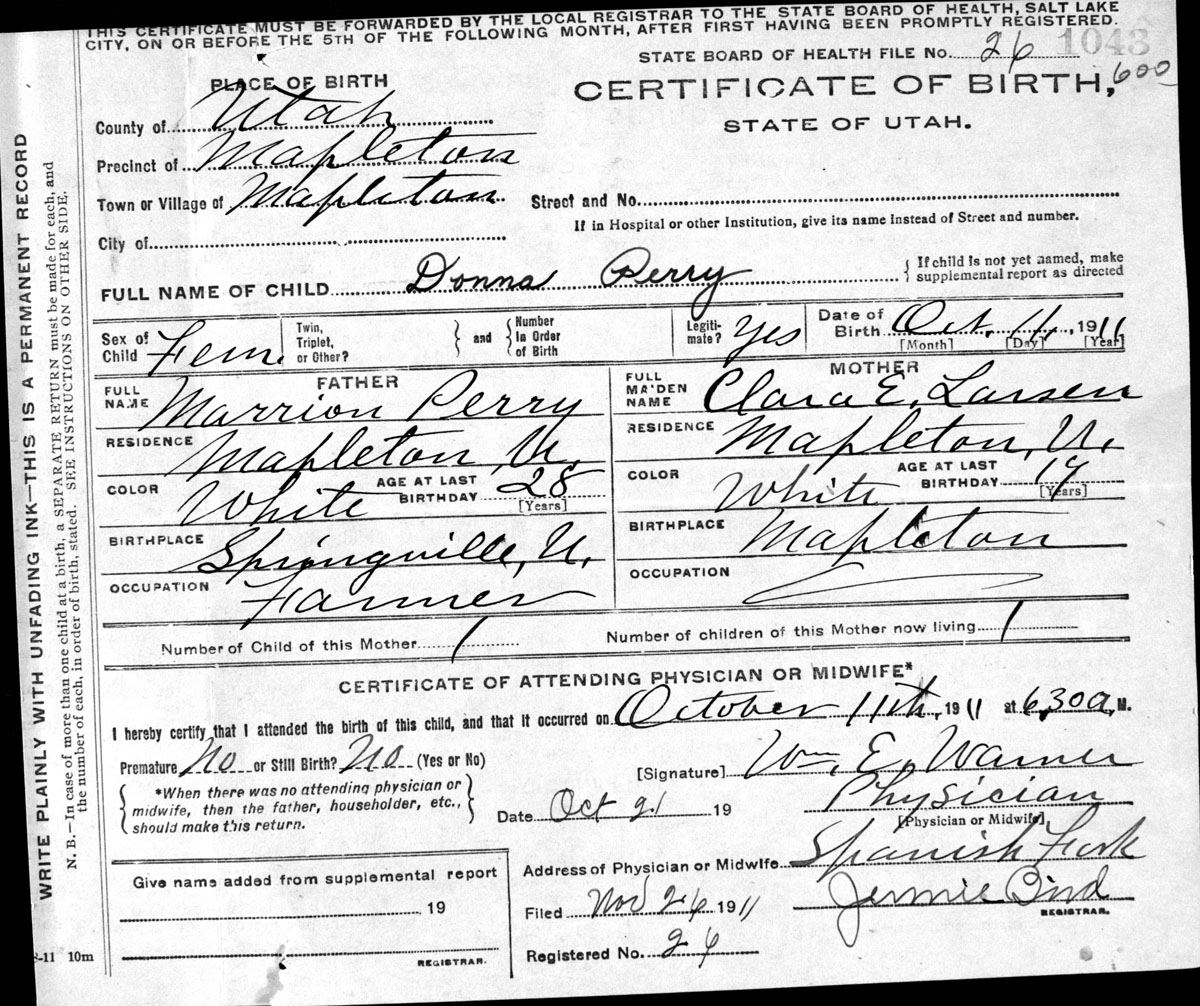 THIS CERTIFICATE MUST BE FORWARDED BY THE LOCAL REGISTRAR TO THE STATE BOARD OF HEALTH, SALT LAKE
CITY, ON OR BEFORE THE 5TH OF THE FOLLOWING MONTH, AFTER FIRST HAVING BEEN PROMPTLY REGISTERED.
STATE BOARD OF HEALTH FILE No. 26 1043
600
PLACE OF BIRTH
CERTIFICATE OF BIRTH,
STATE OF UTAH.
County of Utah
Precinct of Mapleton
Town or Village of Mapleton Street and No.
If in Hospital or other Institution, give its name instead of Street and number.
City of
FULL NAME OF CHILD Donna Perry { If child is not yet named, make supplemental report as directed
Sex of Child Fem. Twin, Triplet, or Other? } and { Number in Order of Birth Legitimate? Yes Date of Birth Oct. 11, 1911
[Month] [Day] [Year]
FATHER MOTHER
FULL NAME Marrion Perry FULL MAIDEN NAME Clara E. Larsen
RESIDENCE Mapleton, U. RESIDENCE Mapleton, U.
COLOR White AGE AT LAST BIRTHDAY 28 [Years] COLOR White AGE AT LAST BIRTHDAY 19 [Years]
BIRTHPLACE Springville, U. BIRTHPLACE Mapleton
OCCUPATION Farmer OCCUPATION
Number of Child of this Mother 1 Number of children of this Mother now living 1
CERTIFICATE OF ATTENDING PHYSICIAN OR MIDWIFE*
I hereby certify that I attended the birth of this child, and that it occurred on October 11th, 1911 at 6,30 a, M.
Premature No or Still Birth? No (Yes or No)
[Signature] Wm. E. Warner
{ *When there was no attending physician or midwife, then the father, householder, etc., should make this return. }
Date Oct 21 19 Physician
[Physician or Midwife]
Address of Physician or Midwife Spanish Fork
Give name added from supplemental report
19
REGISTRAR.
Filed Nov 26 1911 Jennie Bird
REGISTRAR.
Registered No. 26
-11 10m
WRITE PLAINLY WITH UNFADING INK—THIS IS A PERMANENT RECORD
N. B.—In case of more than one child at a birth, a SEPARATE RETURN must be made for each, and
the number of each, in order of birth, stated. SEE INSTRUCTIONS ON OTHER SIDE.